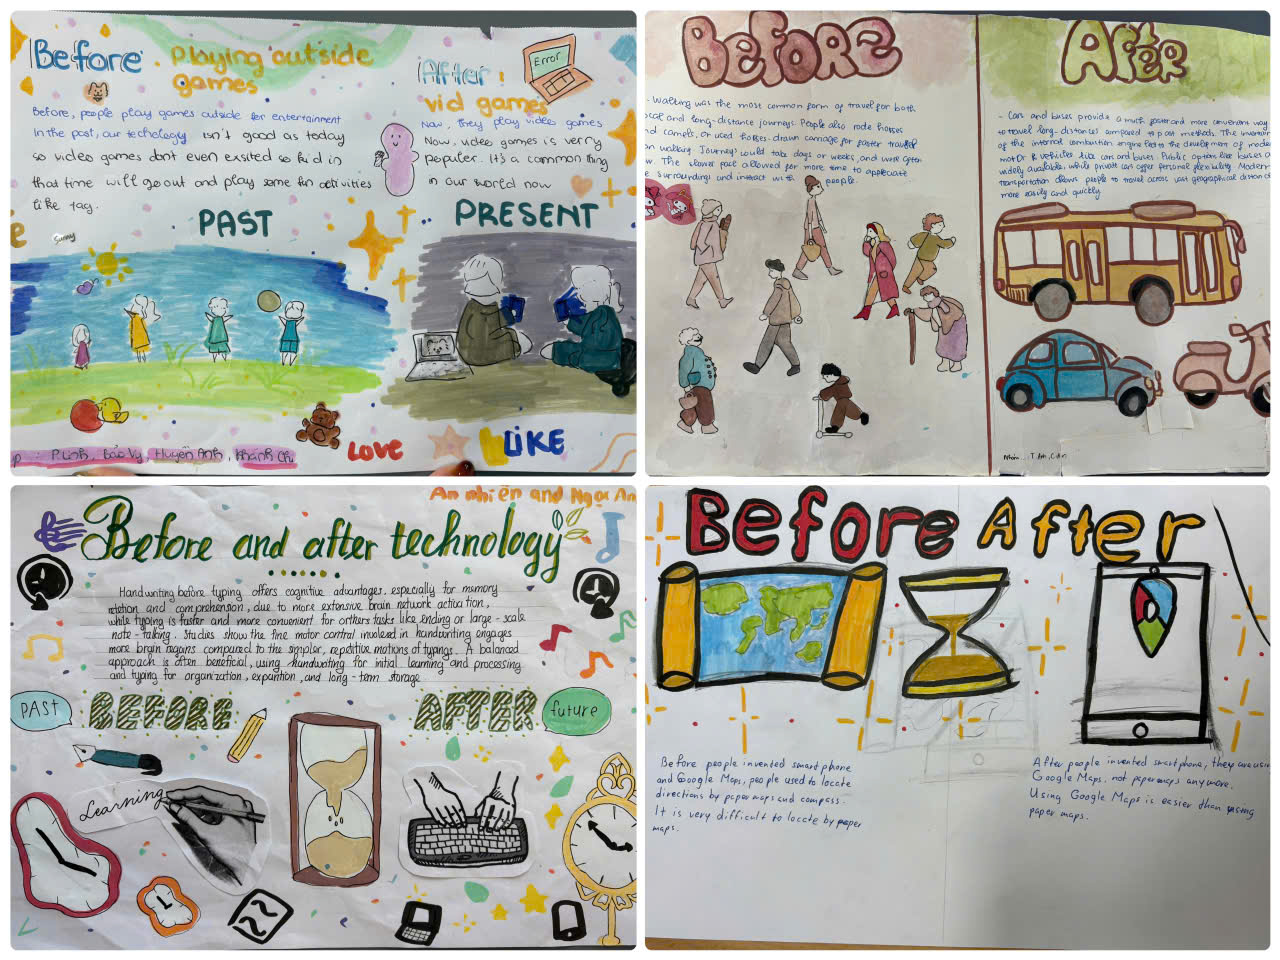 Before : Playing outside
games
Before, people play games outside for entertainment
In the past, our techology isn't good as today
so video games dont even exsited so kid in
that time will go out and play some fun activities
like tag.
PAST
Sunny
After :
vid games
Error
Now, they play video games
Now, video games is verry
populer. It's a common thing
in our world now
PRESENT
LOVE
LIKE
P.Linh, Bảo Vy, Huyền Anh, Khánh Chi
BEFORE
- Walking was the most common form of travel for both
local and long-distance journeys. People also rode horses
and camels, or used horses-drawn carriage for faster travel
than walking. Journeys could take days or weeks, and were often
The slower pace allowed for more time to appreciate
surroundings and interact with people.
AFTER
- Cars and buses provide a much faster and more convenient way
to travel long-distances compared to past methods. The invention
of the internal combustion engine led to the development of modern
motor vehicles like cars and buses. Public options like buses
widely available, while private cars offer personal flexibility. Modern
transportation allows people to travel across vast geographical distances
more easily and quickly.
Nhóm
An nhiên and Ngọc An
Before and after technology
Handwriting before typing offers cognitive advantages, especially for memory
retetion and comprehension, due to more extensive brain network activation,
while typing is faster and more convenient for orthers tasks like ending or large - scale
note - talking. Studies show the fine motor control involved in handwriting engages
more brain regians compared to the simpler, repetitive motions of typings. A balanced
approach is often beneficial, using handwriting for initial learning and processing
and typing for organization, expantion, and long - term storage.
PAST
BEFORE
AFTER
future
Learning
Before After
Before people invented smart phone
and Google Maps, people used to locate
directions by paper maps and compass.
It is very difficult to locate by paper
maps.
After people invented smartphone, they are using
Google Maps, not paper maps any more.
Using Google Maps is easier than using
paper maps.